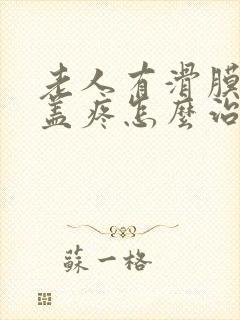 老人有滑膜
盖疼怎麼治
蘇一格